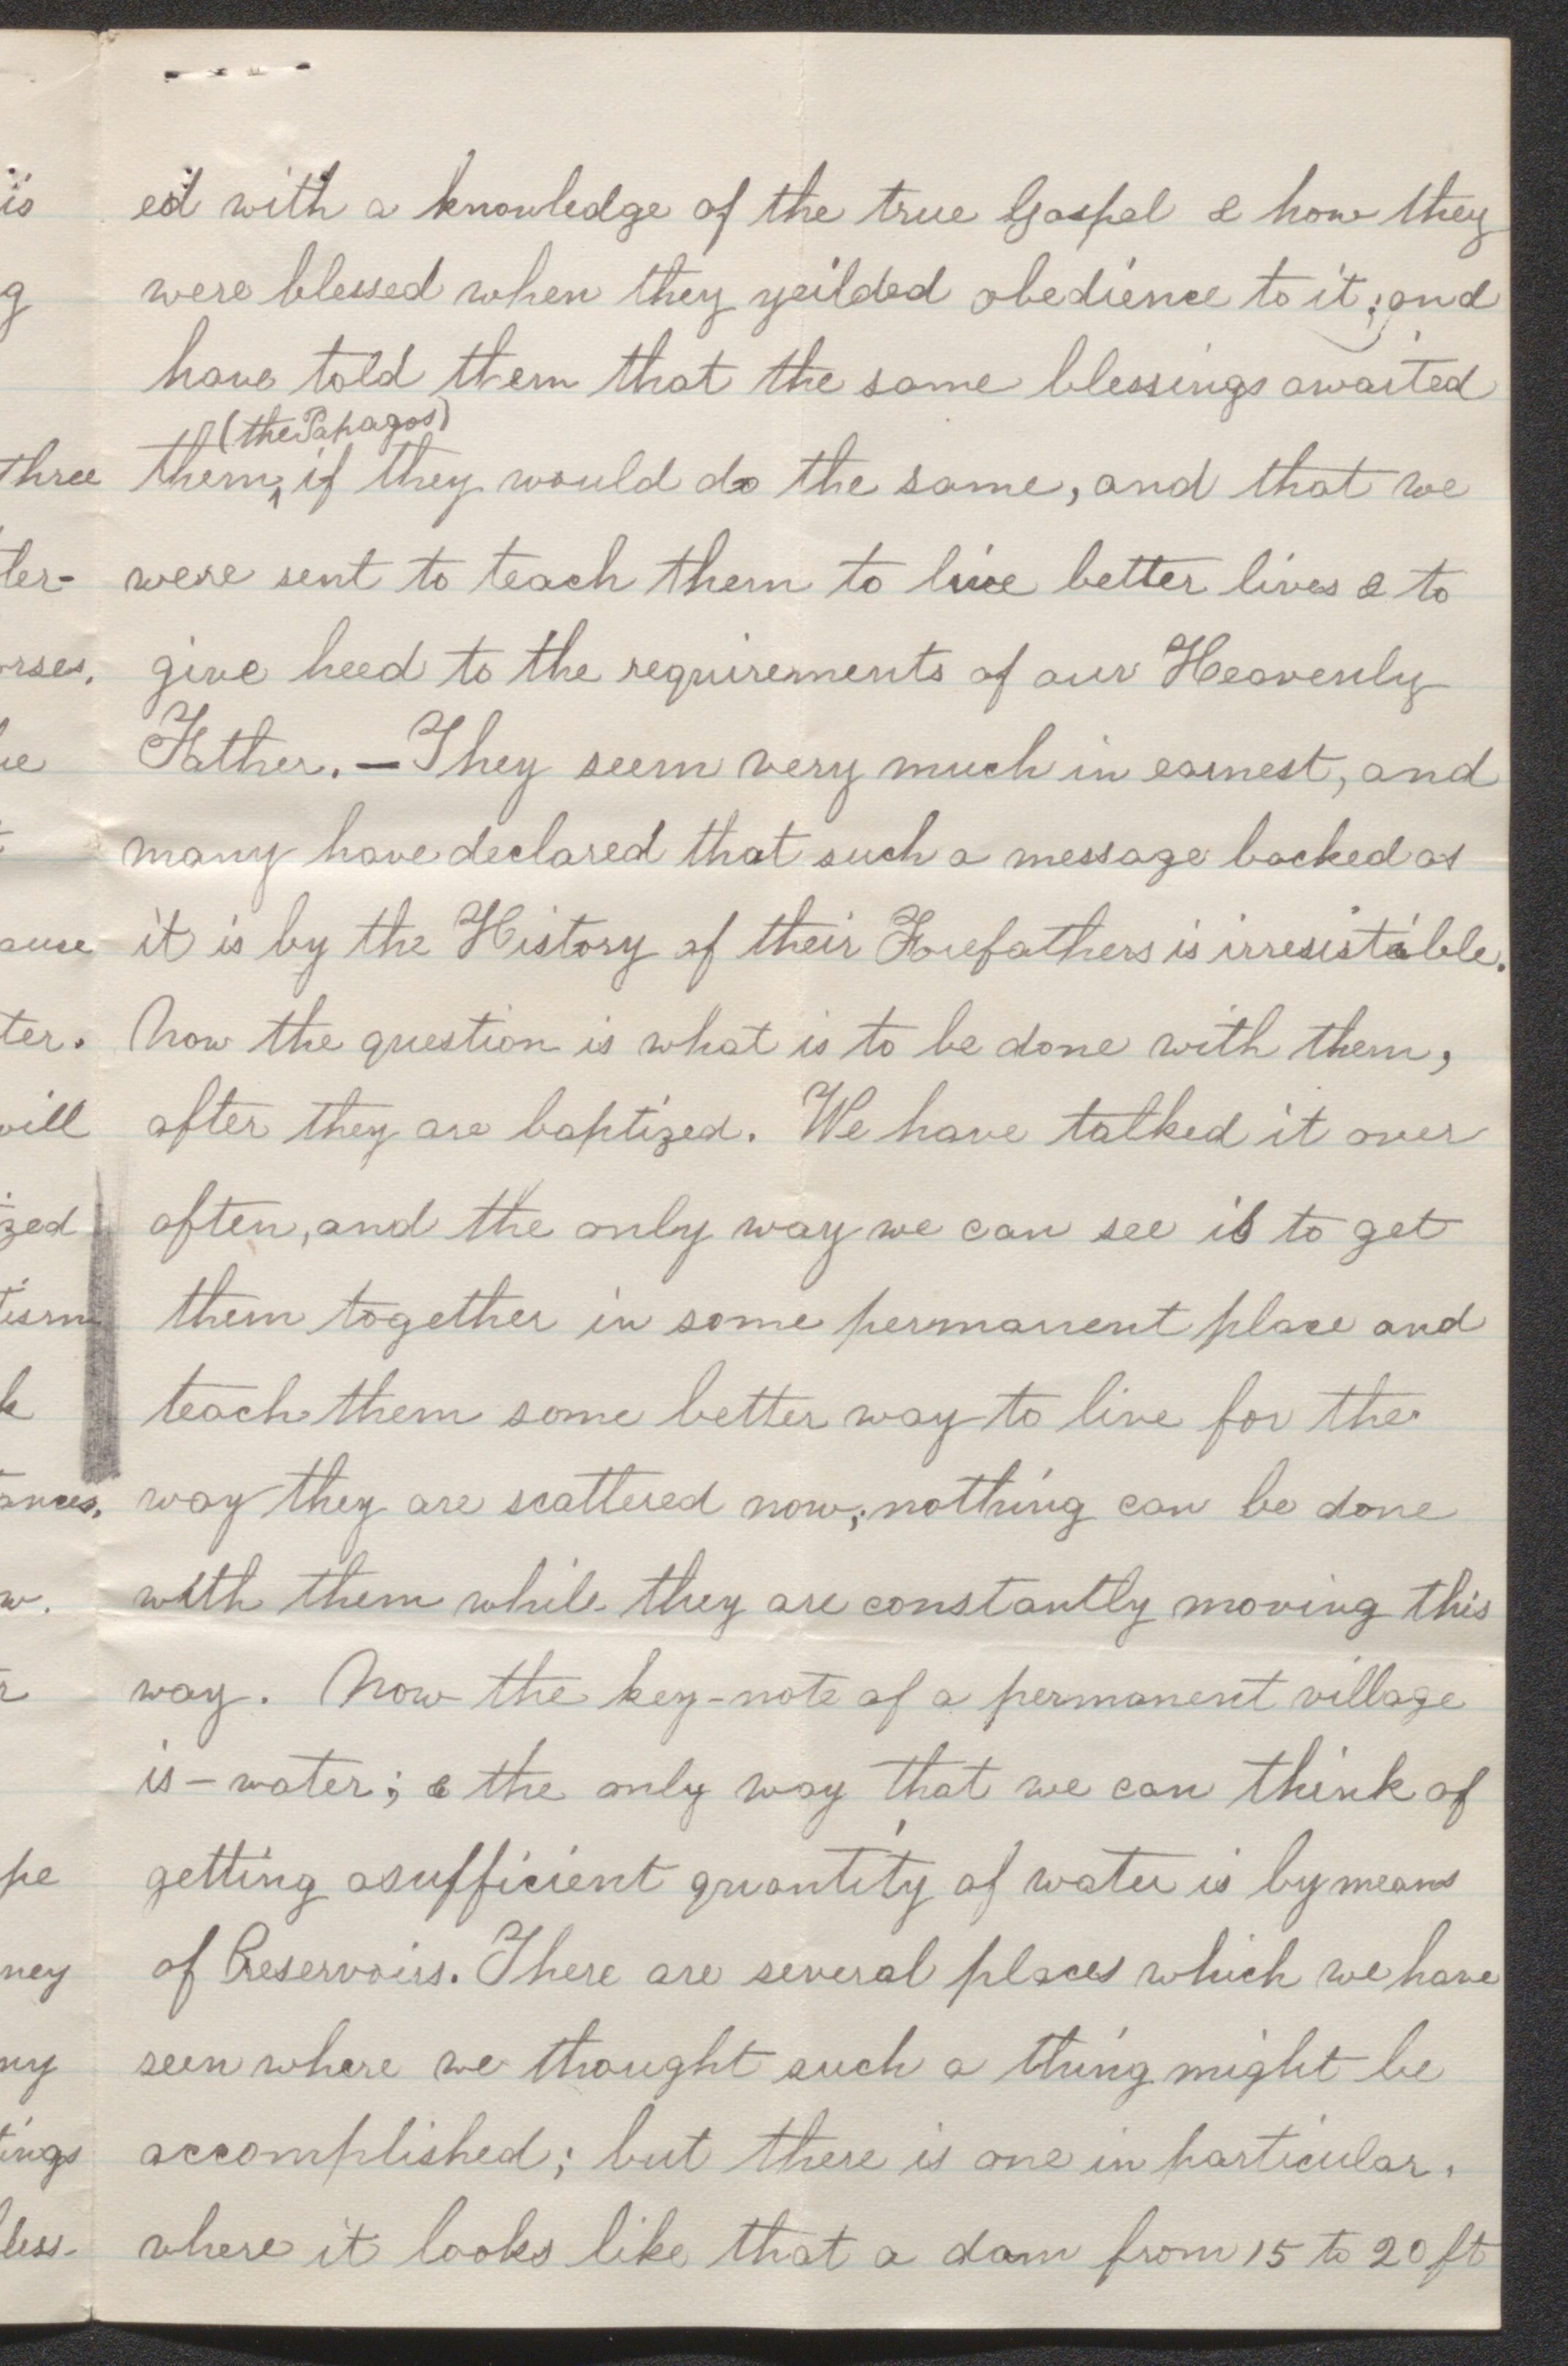 ed with a knowledge of the true Gospel & how they
were blessed when they yeilded obedience to it; and
have told them that the same blessings awaited
(the Papagos)
them, if they would do the same, and that we
were sent to teach them to live better lives & to
give heed to the requirements of our Heavenly
Father. — They seem very much in earnest, and
many have declared that such a message backed as
it is by the History of their Forefathers is irresistable.
Now the question is what is to be done with them,
after they are baptized. We have talked it over
often, and the only way we can see is to get
them together in some permanent place and
teach them some better way to live for the
way they are scattered now; nothing can be done
with them while they are constantly moving this
way. Now the key-note of a permanent village
is - water; & the only way that we can think of
getting a sufficient quantity of water is by means
of Reservoirs. There are several places which we have
seen where we thought such a thing might be
accomplished; but there is one in particular.
where it looks like that a dam from 15 to 20 ft
is
g
three
ter-
orses.
ause
ter.
will
zed
tism
k
ances.
w.
r
pe
ney
ny
tings
less-